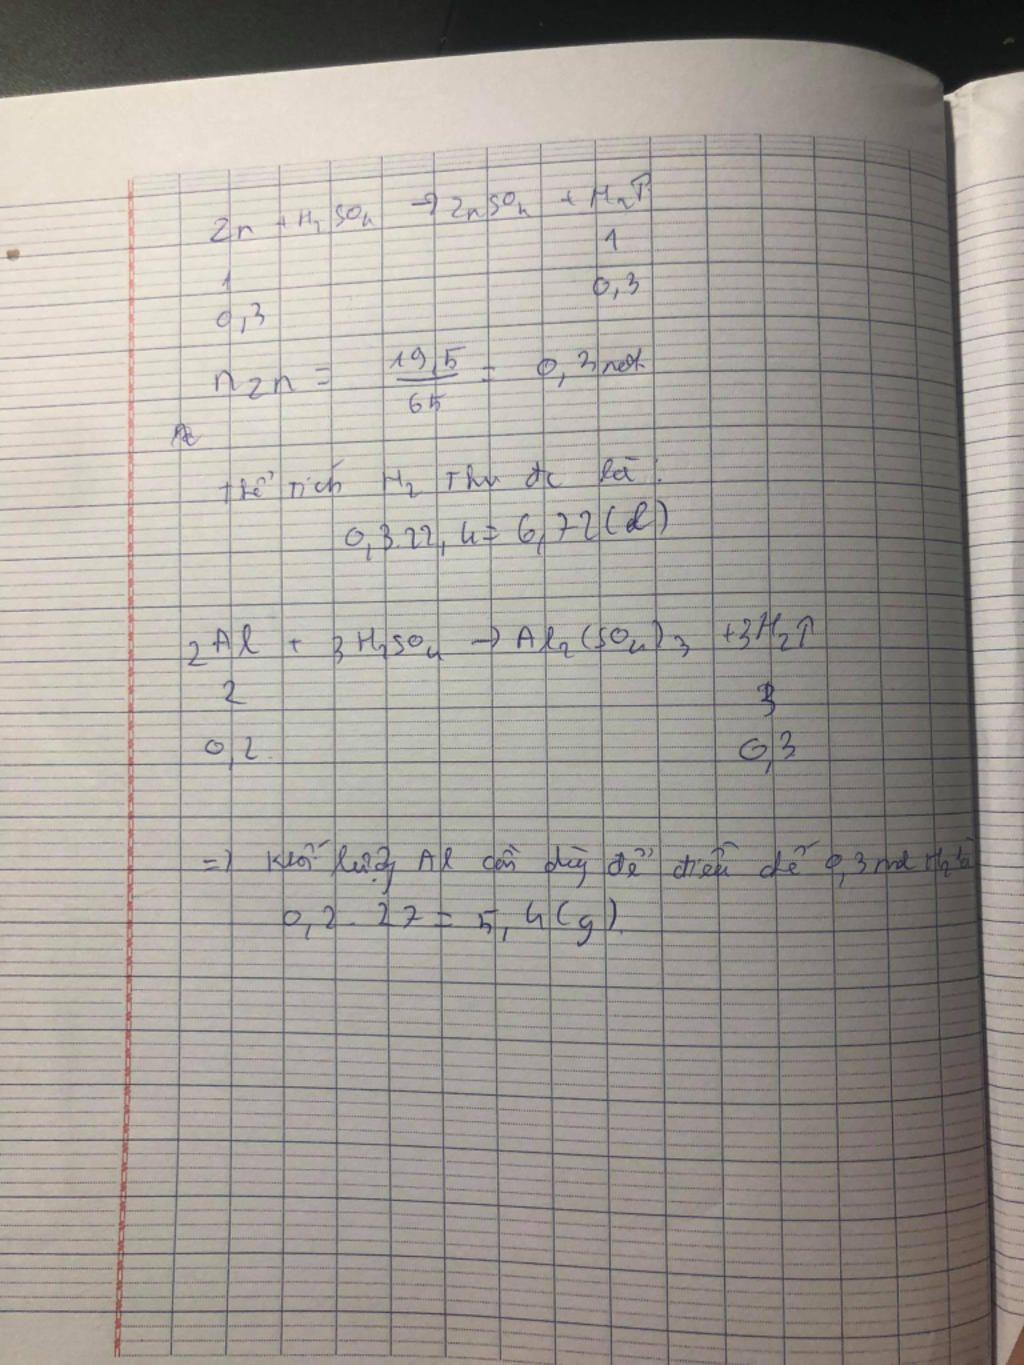 Zn + H2SO4 → ZnSO4 + H2↑
1 1
0,3 0,3
nZn = 19,5/65 = 0,3 mol
thể tích H2 thu đc là:
0,3.22,4 = 6,72 (l)
2Al + 3H2SO4 → Al2(SO4)3 + 3H2↑
2 3
0,2 0,3
=> Khối lượng Al cần dùng để điều chế 0,3 mol H2 là
0,2 . 27 = 5,4 (g).